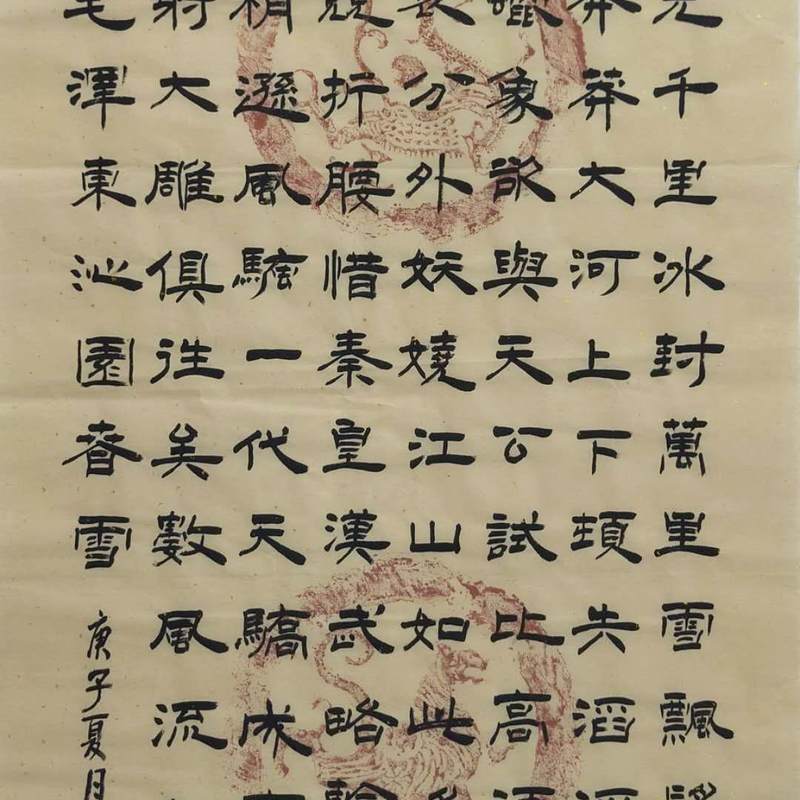 光千里冰封萬里雪飄
莽莽大河上下頓失滔滔
蠟象欲與天公試比高須
裹分外妖嬈江山如此多
競折腰惜秦皇漢武略輸
稍遜風騷一代天驕成吉
射大雕俱往矣數風流
毛澤東沁園春雪 庚子夏月